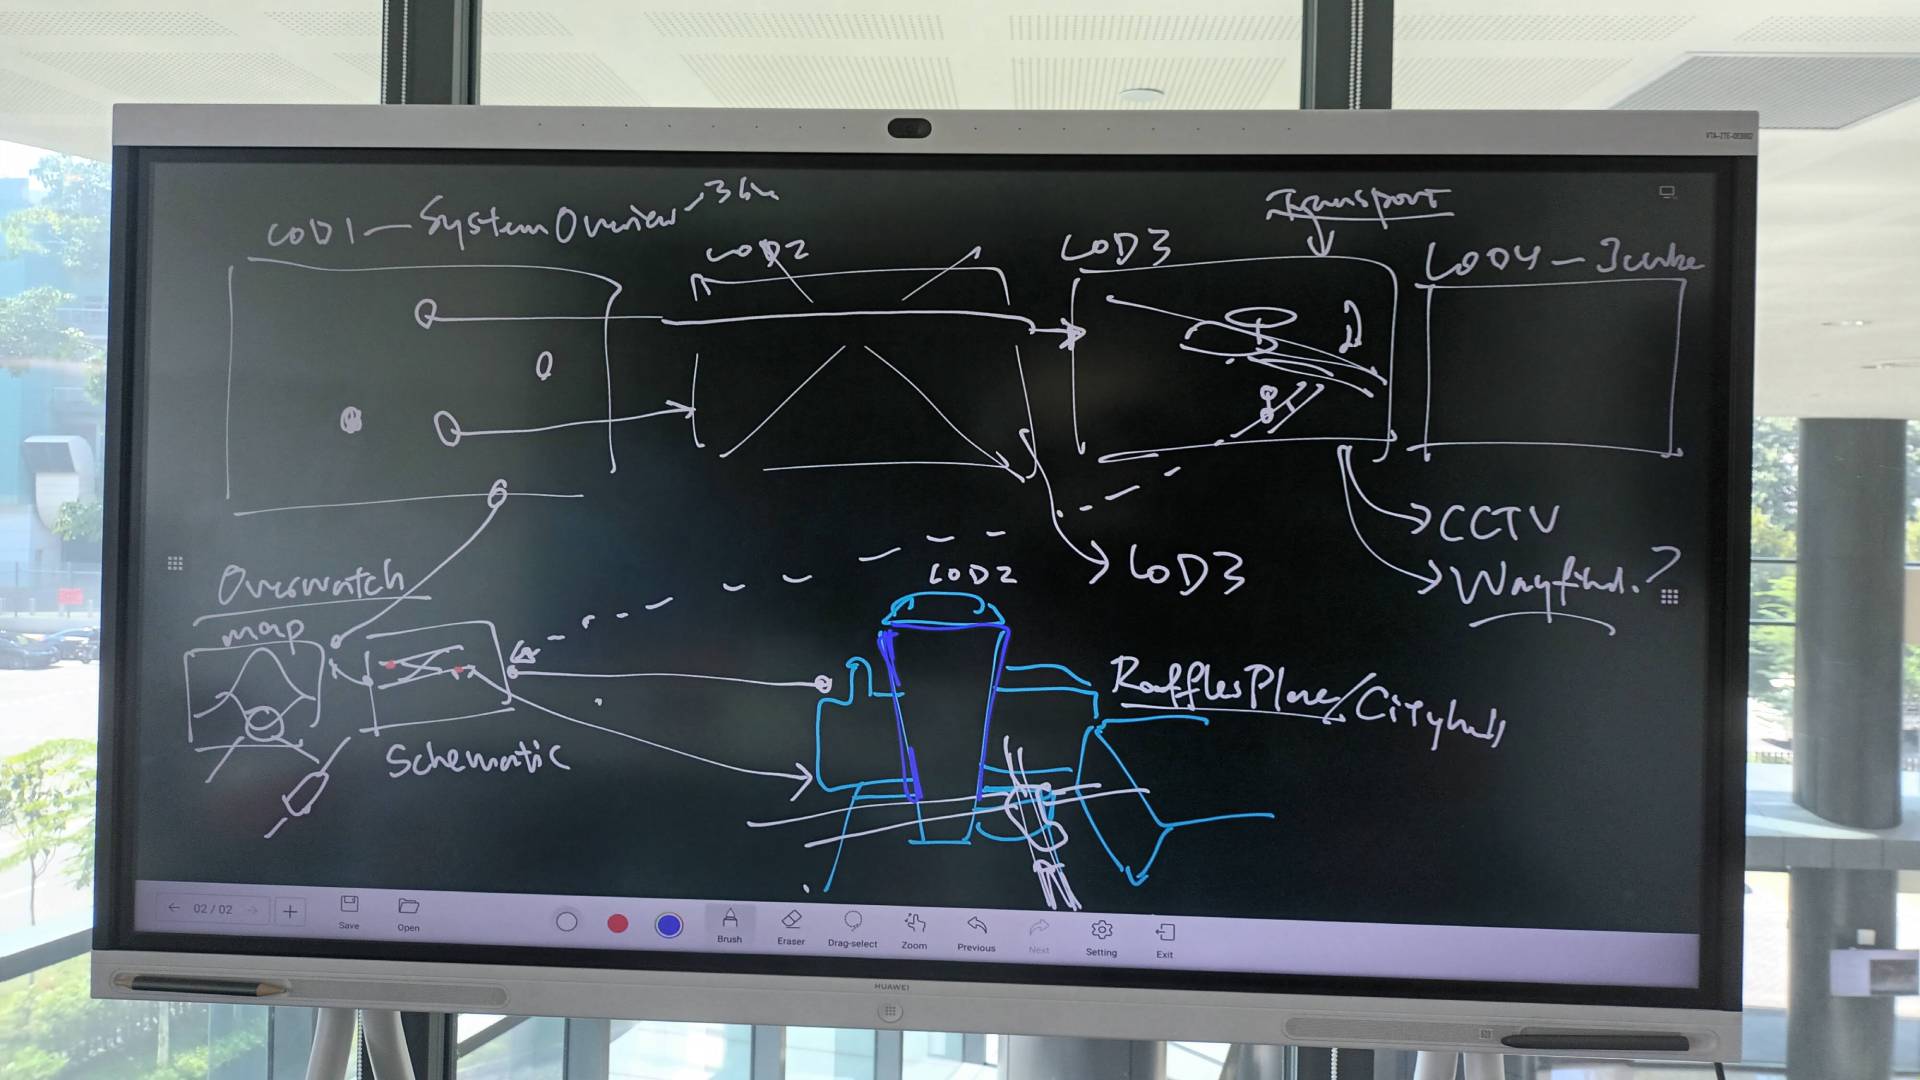 LOD1 — System Overview
LOD2
LOD3
Transport
LOD4 —
CCTV
Wayfind.?
LOD3
Overwatch
map
Schematic
LOD2
Raffles Place/Cityhall
02 / 02
Save
Open
Brush
Eraser
Drag-select
Zoom
Previous
Next
Setting
Exit
HUAWEI